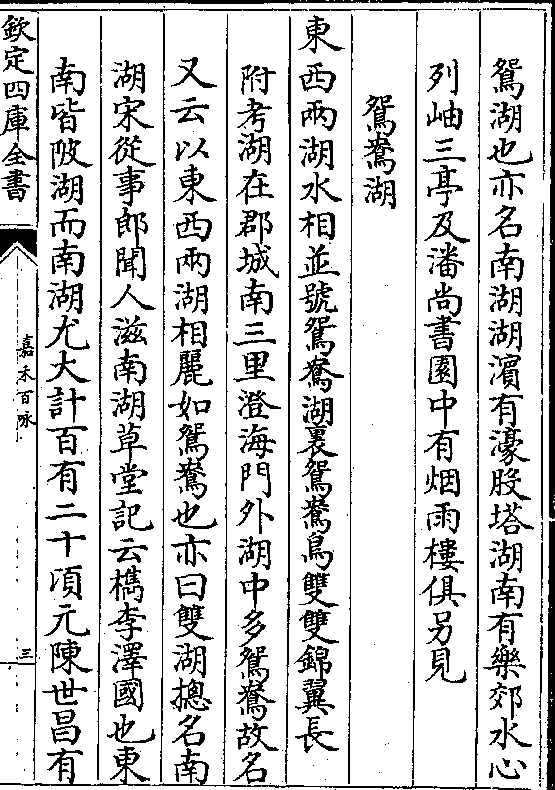 鴛湖也亦名南湖湖濵有濠股塔湖南有樂郊水心
列岫三亭及潘尚書園中有烟雨樓俱另見
鴛鴦湖
東西兩湖水相並號鴛鴦湖裏鴛鴦鳥雙雙錦翼長
附考湖在郡城南三里澄海門外湖中多鴛鴦故名
又云以東西兩湖相麗如鴛鴦也亦曰雙湖摠名南
湖宋從事郎聞人滋南湖草堂記云檇李澤國也東
南皆陂湖而南湖尤大計百有二十頃元陳世昌有
欽定四庫全書
嘉禾百咏
三